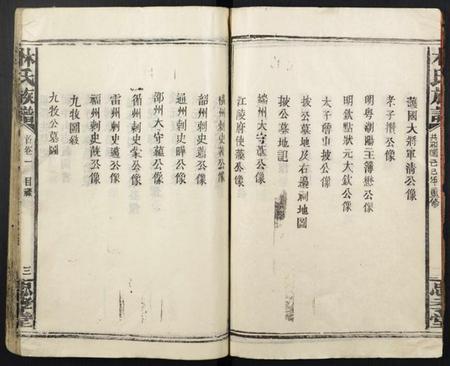 林氏族譜
忠孝堂
護國大將軍清公像
孝子攢公像
明粵潮陽主簿懋公像
明欽點狀元大欽公像
太子詹事披公像
披公墓地及右邊祠地圖
披公墓地記
端州太守葦公像
江陵府使藻公像
橫州刺史著公像
韶州刺史薦公像
通州刺史曄公像
邵州太守蘊公像
循州刺史蒙公像
雷州刺史邁公像
福州刺史蔇公像
九牧圖敍
九牧公墓圖
林氏族譜
首卷
目錄
三
忠孝堂